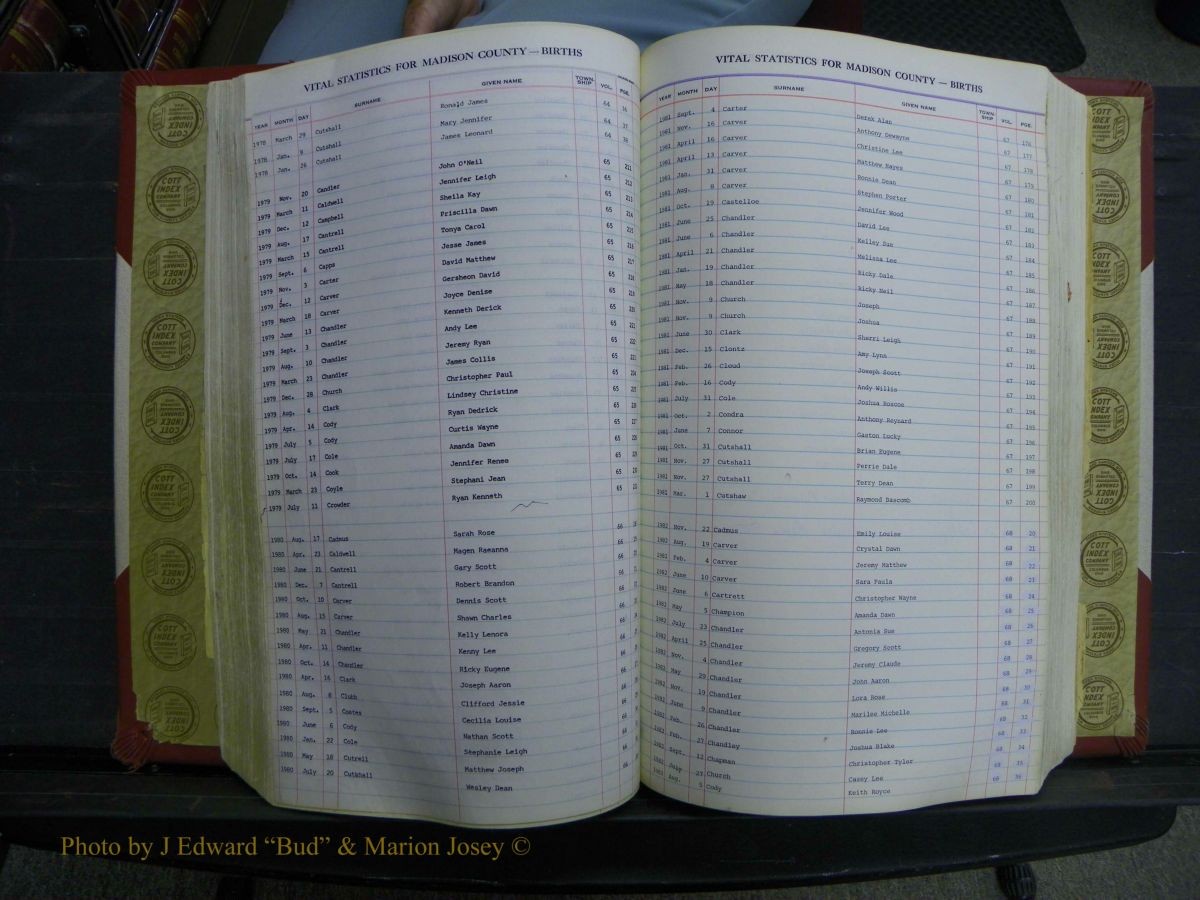 VITAL STATISTICS FOR MADISON COUNTY — BIRTHS
YEAR MONTH DAY SURNAME GIVEN NAME TOWN-SHIP VOL. PGE.
1978 March 29 Cutshall Ronald James 64 36
1978 Jan. 9 Cutshall Mary Jennifer 64 37
1978 Jan. 26 Cutshall James Leonard 64 38
1979 Nov. 20 Candler John O'Neil 65 211
1979 March 11 Caldwell Jennifer Leigh 65 212
1979 Dec. 12 Campbell Sheila Kay 65 213
1979 Aug. 17 Cantrell Priscilla Dawn 65 214
1979 March 15 Cantrell Tonya Carol 65 215
1979 Sept. 6 Capps Jesse James 65 216
1979 Nov. 3 Carter David Matthew 65 217
1979 Dec. 12 Carver Gersheon David 65 218
1979 March 18 Carver Joyce Denise 65 219
1979 June 13 Chandler Kenneth Derick 65 220
1979 Sept. 3 Chandler Andy Lee 65 221
1979 Aug. 10 Chandler Jeremy Ryan 65 222
1979 March 23 Chandler James Collis 65 223
1979 Dec. 28 Church Christopher Paul 65 224
1979 Aug. 4 Clark Lindsey Christine 65 225
1979 Apr. 14 Cody Ryan Dedrick 65 226
1979 July 5 Cody Curtis Wayne 65 227
1979 July 17 Cole Amanda Dawn 65 228
1979 Oct. 14 Cook Jennifer Renee 65 229
1979 March 23 Coyle Stephani Jean 65 230
1979 July 11 Crowder Ryan Kenneth 65 231
1980 Aug. 17 Cadmus Sarah Rose 66
1980 Apr. 23 Caldwell Magen Raeanna 66
1980 June 21 Cantrell Gary Scott 66
1980 Dec. 7 Cantrell Robert Brandon 66
1980 Oct. 10 Carver Dennis Scott 66
1980 Aug. 15 Carver Shawn Charles 66
1980 May 21 Chandler Kelly Lenora 66
1980 Apr. 11 Chandler Kenny Lee 66
1980 Oct. 14 Chandler Ricky Eugene 66
1980 Apr. 16 Clark Joseph Aaron 66
1980 Aug. 8 Clubb Clifford Jessie 66
1980 Sept. 5 Coates Cecilia Louise 66
1980 June 6 Cody Nathan Scott 66
1980 Jan. 22 Cole Stephanie Leigh 66
1980 May 18 Cutrell Matthew Joseph 66
1980 July 20 Cutshall Wesley Dean
VITAL STATISTICS FOR MADISON COUNTY — BIRTHS
YEAR MONTH DAY SURNAME GIVEN NAME TOWN-SHIP VOL. PGE.
1981 Sept. 4 Carter Derek Alan 67 176
1981 Nov. 16 Carver Anthony Dewayne 67 177
1981 April 16 Carver Christine Lee 67 178
1981 April 13 Carver Matthew Hayes 67 179
1981 Jan. 31 Carver Ronnie Dean 67 180
1981 Aug. 8 Carver Stephen Porter 67 181
1981 Oct. 19 Castelloe Jennifer Wood 67 182
1981 June 25 Chandler David Lee 67 183
1981 June 6 Chandler Kelley Sue 67 184
1981 April 21 Chandler Melissa Lee 67 185
1981 Jan. 19 Chandler Ricky Dale 67 186
1981 May 18 Chandler Ricky Neil 67 187
1981 Nov. 9 Church Joseph 67 188
1981 Nov. 9 Church Joshua 67 189
1981 June 30 Clark Sherri Leigh 67 190
1981 Dec. 15 Clontz Amy Lynn 67 191
1981 Feb. 26 Cloud Joseph Scott 67 192
1981 Feb. 16 Cody Andy Willis 67 193
1981 July 31 Cole Joshua Roscoe 67 194
1981 Oct. 2 Condra Anthony Reynard 67 195
1981 June 7 Connor Gaston Lucky 67 196
1981 Oct. 31 Cutshall Brian Eugene 67 197
1981 Nov. 27 Cutshall Perrie Dale 67 198
1981 Nov. 27 Cutshall Terry Dean 67 199
1981 Mar. 1 Cutshaw Raymond Bascomb 67 200
1982 Nov. 22 Cadmus Emily Louise 68 20
1982 Aug. 19 Carver Crystal Dawn 68 21
1982 Feb. 4 Carver Jeremy Matthew 68 22
1982 June 10 Carver Sara Paula 68 23
1982 June 6 Cartrett Christopher Wayne 68 24
1982 May 5 Champion Amanda Dawn 68 25
1982 July 23 Chandler Antonia Sue 68 26
1982 April 25 Chandler Gregory Scott 68 27
1982 Nov. 4 Chandler Jeremy Claude 68 28
1982 May 29 Chandler John Aaron 68 29
1982 Nov. 19 Chandler Lora Rose 68 30
1982 June 9 Chandler Marilee Michelle 68 31
1982 Feb. 26 Chandler Ronnie Lee 68 32
1982 Feb. 27 Chandley Joshua Blake 68 33
1982 Sept. 12 Chapman Christopher Tyler 68 34
1982 July 27 Church Casey Lee 68 35
1982 Aug. 5 Cody Keith Royce 68 36
COTT INDEX COMPANY
Photo by J Edward “Bud” & Marion Josey ©